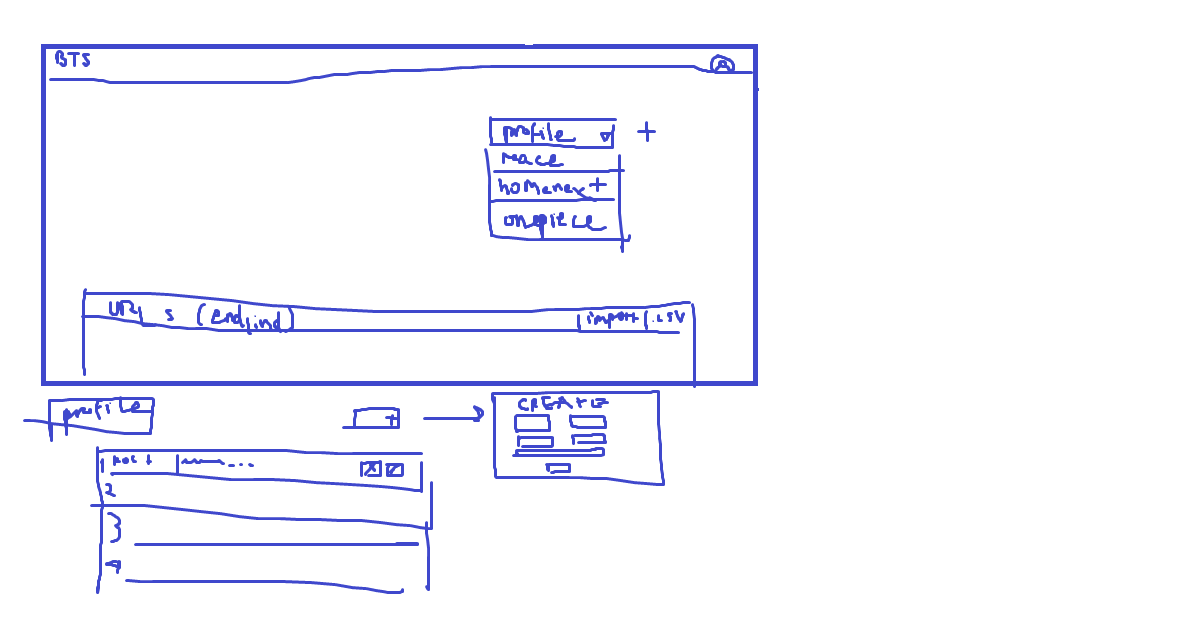 BTS
profile +
mace
homenex+
onepiece
URL s (endfind)
import .csv
profile
+
CREATE
1
2
3
4